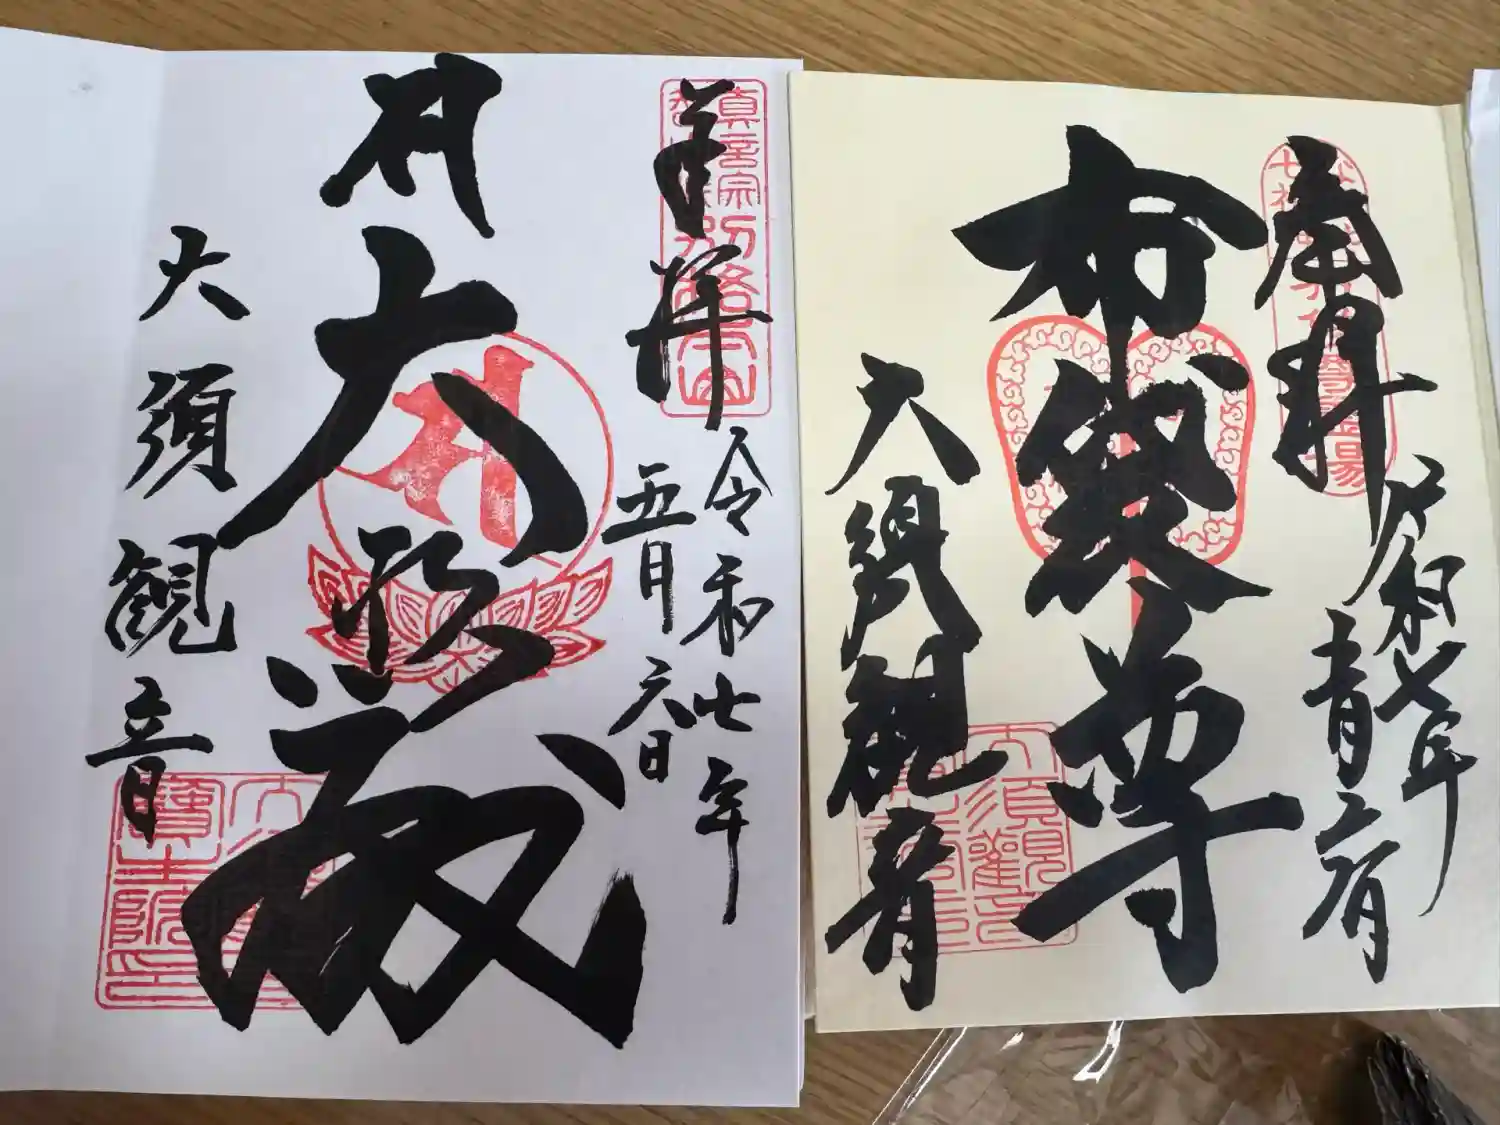 奉拝
令和七年
五月六日
大悲殿
大須観音
奉拝
令和七年
五月六日
布袋尊
大須観音